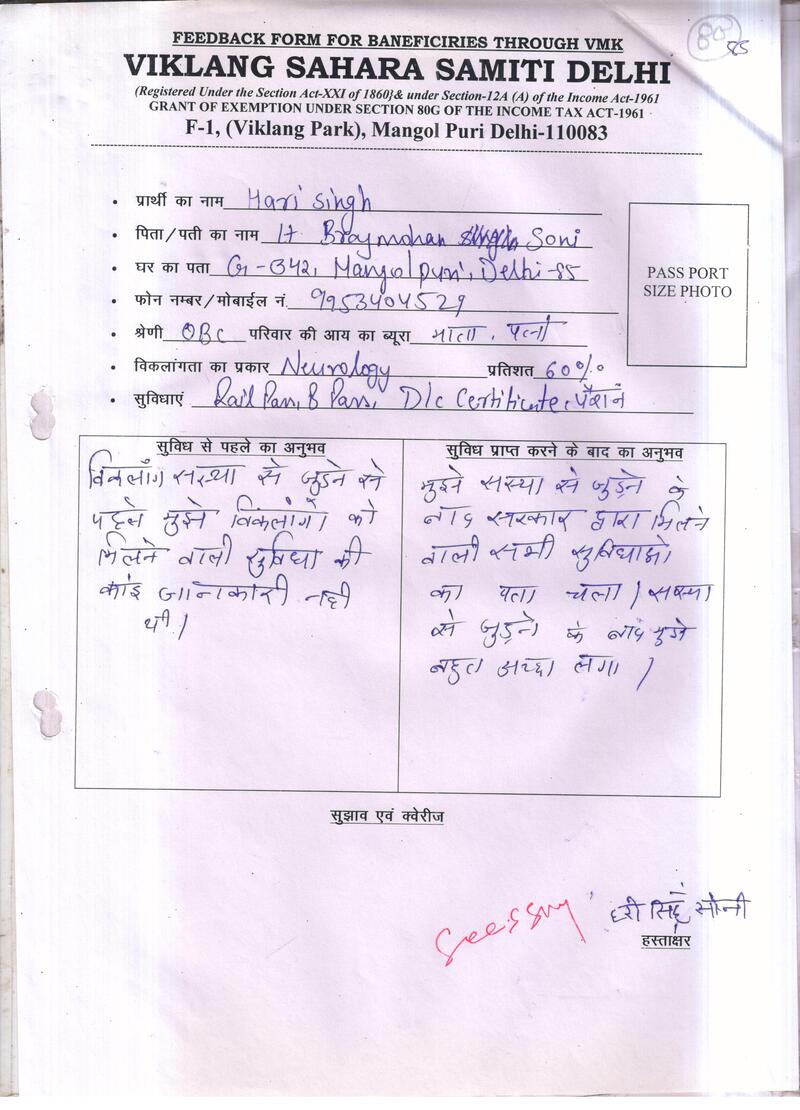 80
85
FEEDBACK FORM FOR BANEFICIRIES THROUGH VMK
VIKLANG SAHARA SAMITI DELHI
(Registered Under the Section Act-XXI of 1860}& under Section-12A (A) of the Income Act-1961
GRANT OF EXEMPTION UNDER SECTION 80G OF THE INCOME TAX ACT-1961
F-1, (Viklang Park), Mangol Puri Delhi-110083
• प्रार्थी का नाम Hari Singh
• पिता/पती का नाम Lt Brajmohan Soni
• घर का पता G-342, Mangolpuri, Delhi-85
• फोन नम्बर/मोबाईल नं. 9953404529
• श्रेणी OBC परिवार की आय का ब्यूरा माता, पत्नी
• विकलांगता का प्रकार Neurology प्रतिशत 60%
• सुविधाएं Rail Pass, B Pass, D/c Certificate, पैंशन
PASS PORT
SIZE PHOTO
सुविध से पहले का अनुभव
विकलाँग सस्था से जुडने से
पहले मुझे विकलांगों को
मिलने वाली सुविधा की
कोई जानकारी नही
थी।
सुविध प्राप्त करने के बाद का अनुभव
मुझे सस्था से जुड़ने के
बाद सरकार द्वारा मिलने
वाली सभी सुविधाओ
का पता चला। सस्था
से जुड़ने के बाद मुझे
बहुत अच्छा लगा।
सुझाव एवं क्वेरीज
हरी सिंह सोनी
हस्ताक्षर